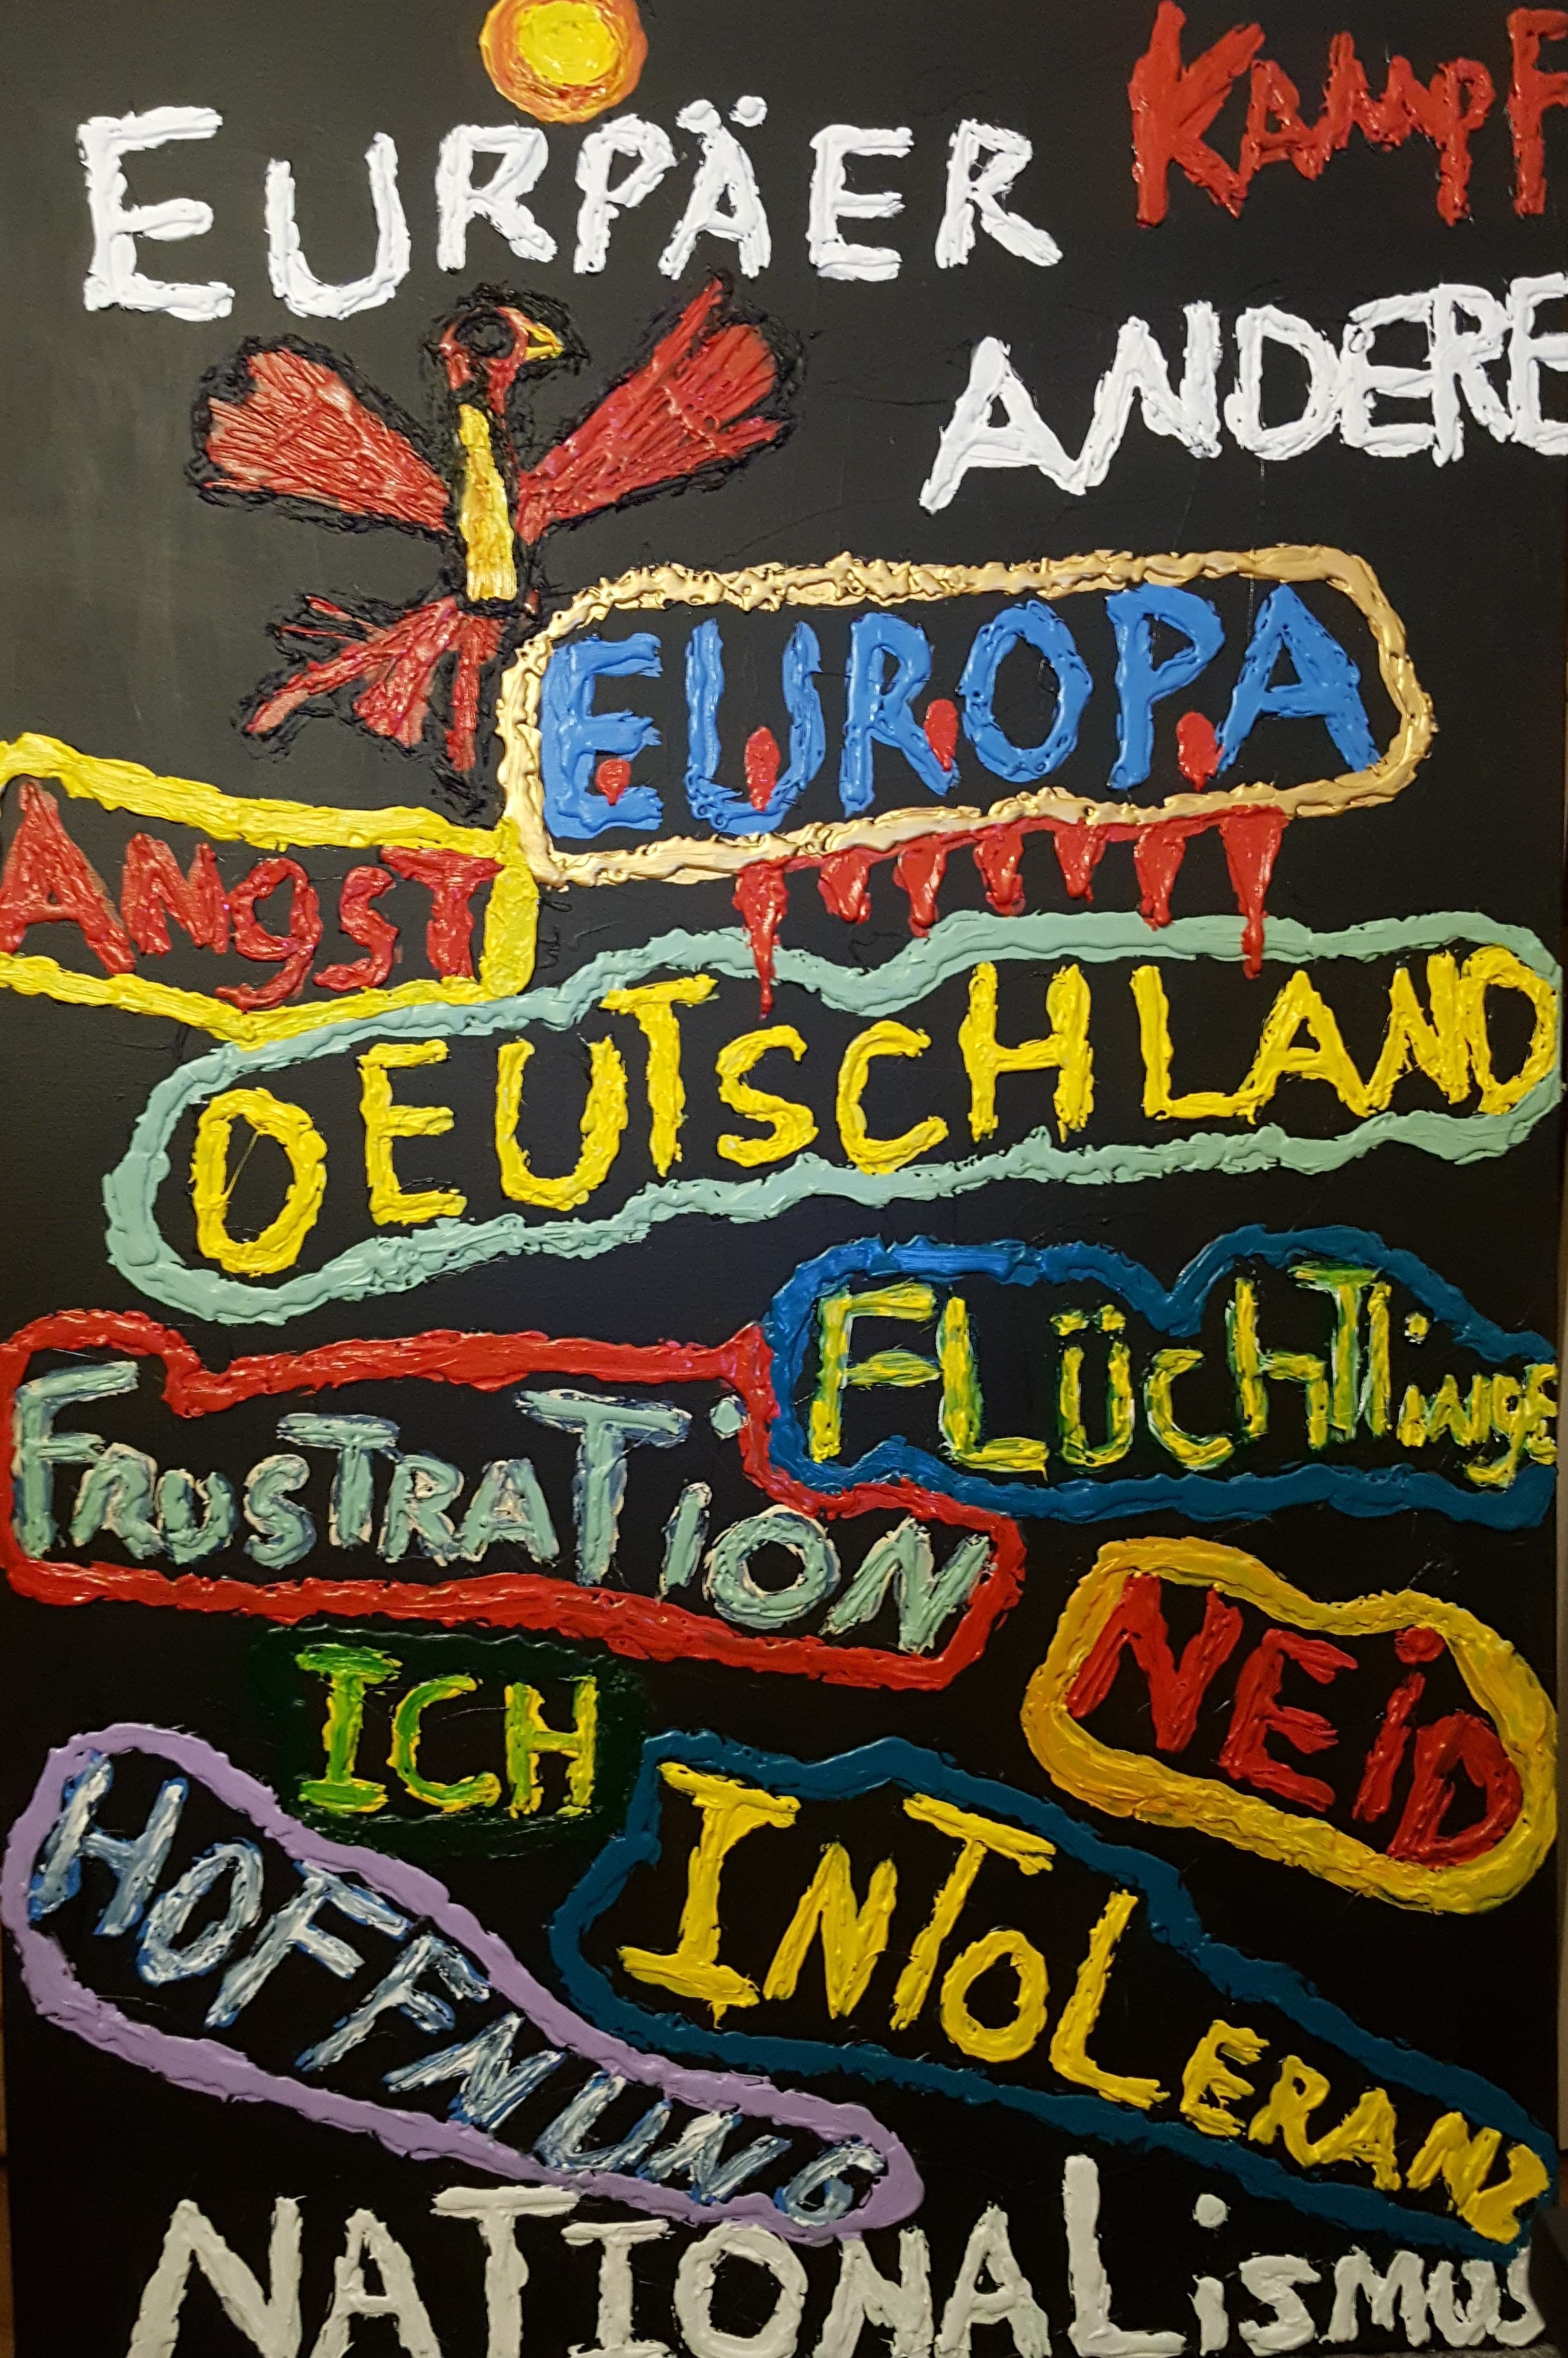 KAMPF
EURPÄER
ANDERE
EUROPA
ANGST
DEUTSCHLAND
FLÜCHTLINGE
FRUSTRATION
NEID
ICH
INTOLERANZ
HOFFNUNG
NATIONALISMUS